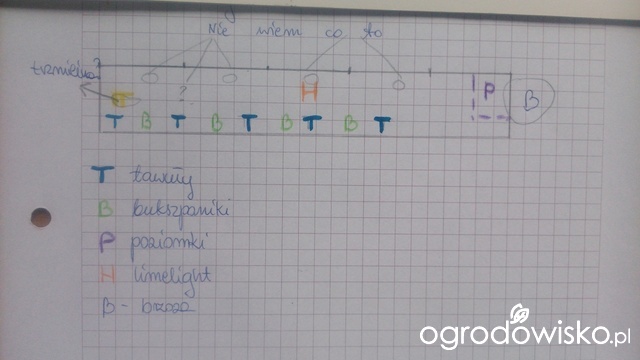 Nie wiem co to
trzmielina?
T ? H P B
T B T B T B T B T
T tawuły
B bukszpaniki
P poziomki
H limelight
B - brzoza
ogrodowisko.pl